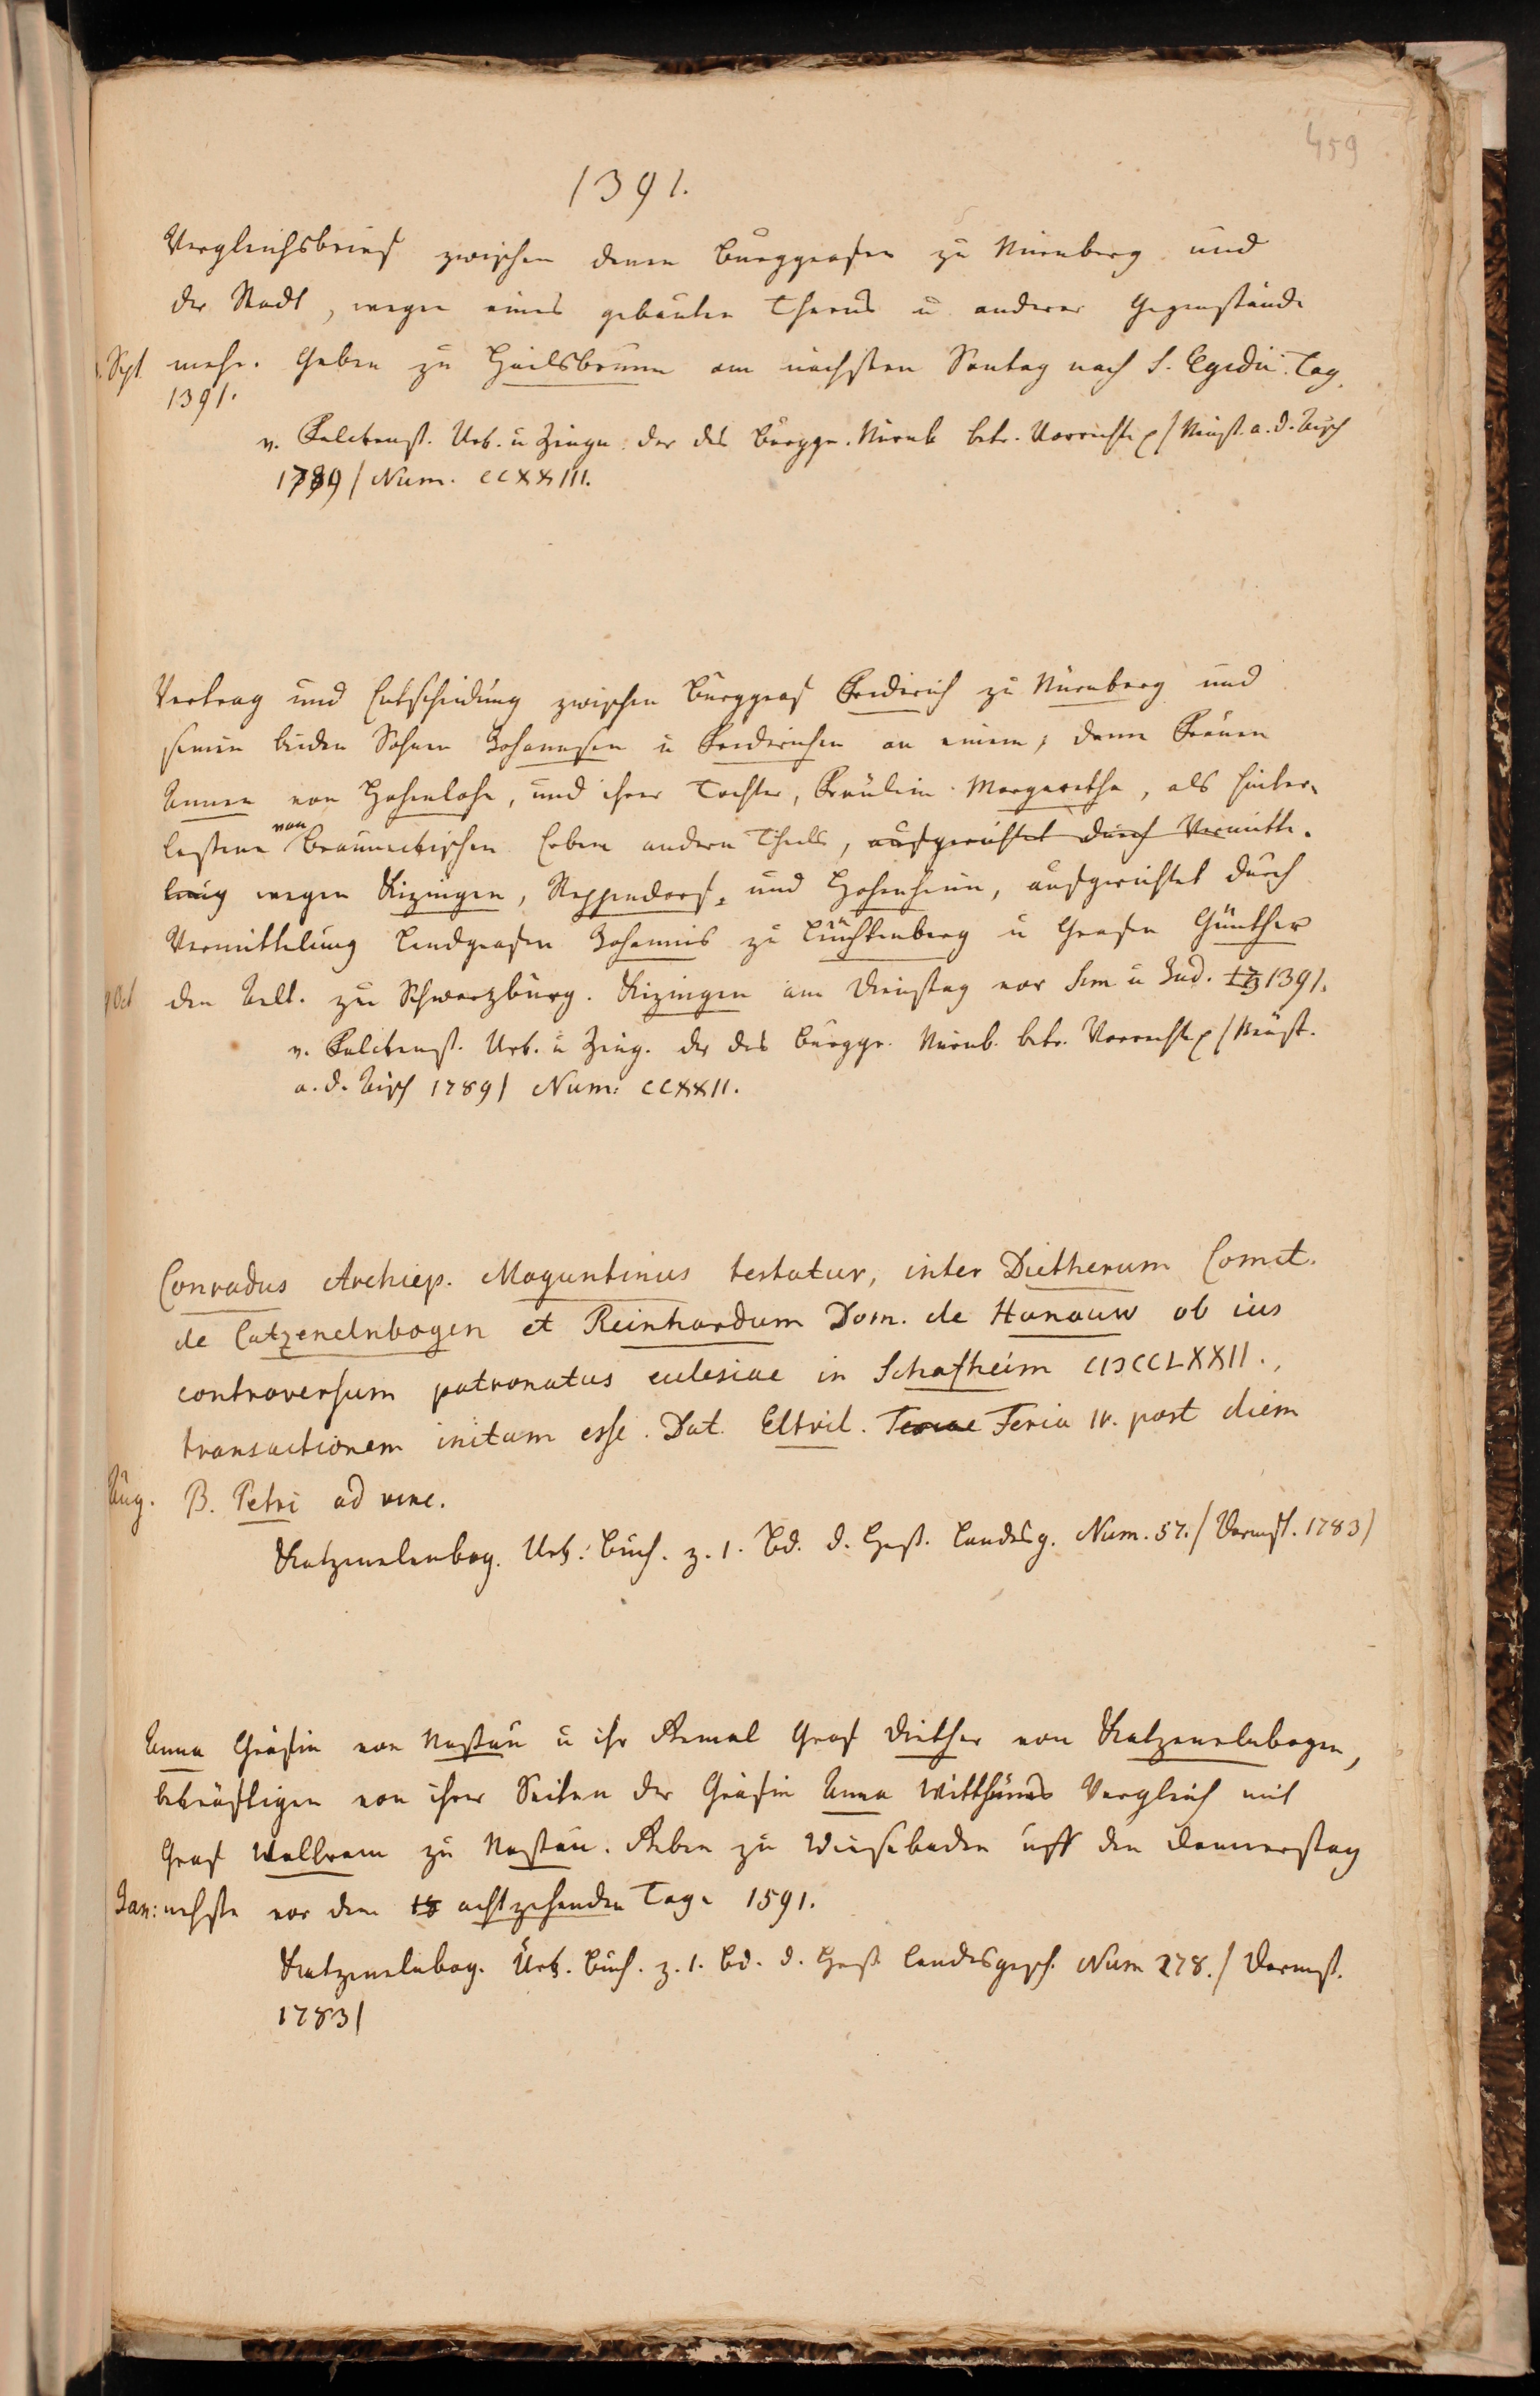 459
1391.
Vergleichsbrief zwischen denen Burggrafen zu Nürnberg und
der Stadt, wegen eines gebauten Thurns u anderer Gegenstände
Sept. mehr. Geben zu Heilsbrunn am nächsten Sontag nach S. Egidii Tag
1391.
v. Falckenst. Urk. u Zeugn. der des Burggr. Nürnb betr. Vorrechte /Neust. a. d. Aisch
1789/ Num. CCXXIII.
Vertrag und Entscheidung zwischen Burggraf Friderich zu Nürnberg und
seinen beiden Söhnen Johannsen u Friderichen an einem, dann Frauen
Annen von Hohenlohe, und ihrer Tochter, Fräulein Margaretha, als hinter-
lassene von Brauneckischen Erben andern Theils, aufgerichtet durch Vermitte-
lung wegen Kizingen, Reppendorf, und Hohenheim, aufgerichtet durch
Vermittelung Landgrafen Johannis zu Leuchtenberg u Grafen Günther
Oct den Aelt. zu Schwarzburg. Kizingen am Dienstag vor Sim u Jud. 1391.
v. Falckenst. Urk. u Zeug. der des Burggr. Nürnb. betr. Vorrechte /Neust.
a. d. Aisch 1789/ Num: CCXXII.
Conradus Archiep. Moguntinus testatur, inter Dietherum Comit.
de Catzenelnbogen et Reinhardum Dom. de Hanauw ob ius
controversum patronatus eulesiae in Schafheim CIƆCCLXXII.,
transactionem initam esse. Dat. Eltvil. Feria IV. post diem
Aug. B. Petri ad vinc.
Katzenelenbog. Urk. Buch. z. 1. Bd. d. Hess. Landesg. Num. 57. /Darmst. 1783/
Anna Gräfin von Nassau u ihr Gemal Graf Diether von Katzenelnbogen,
bekräftigen von ihrer Seiten der Gräfin Anna Witthums Vergleich mit
Graf Walbram zu Nassau. Geben zu Wiesebaden uff den Donnerstag
Jan: nehste vor dem 18 achtzehenden Tage 1591.
Katzenelnbog. Urk. Buch. z. 1. Bd. d. Hess. Landesgesch. Num 278. / Darmst.
1783/